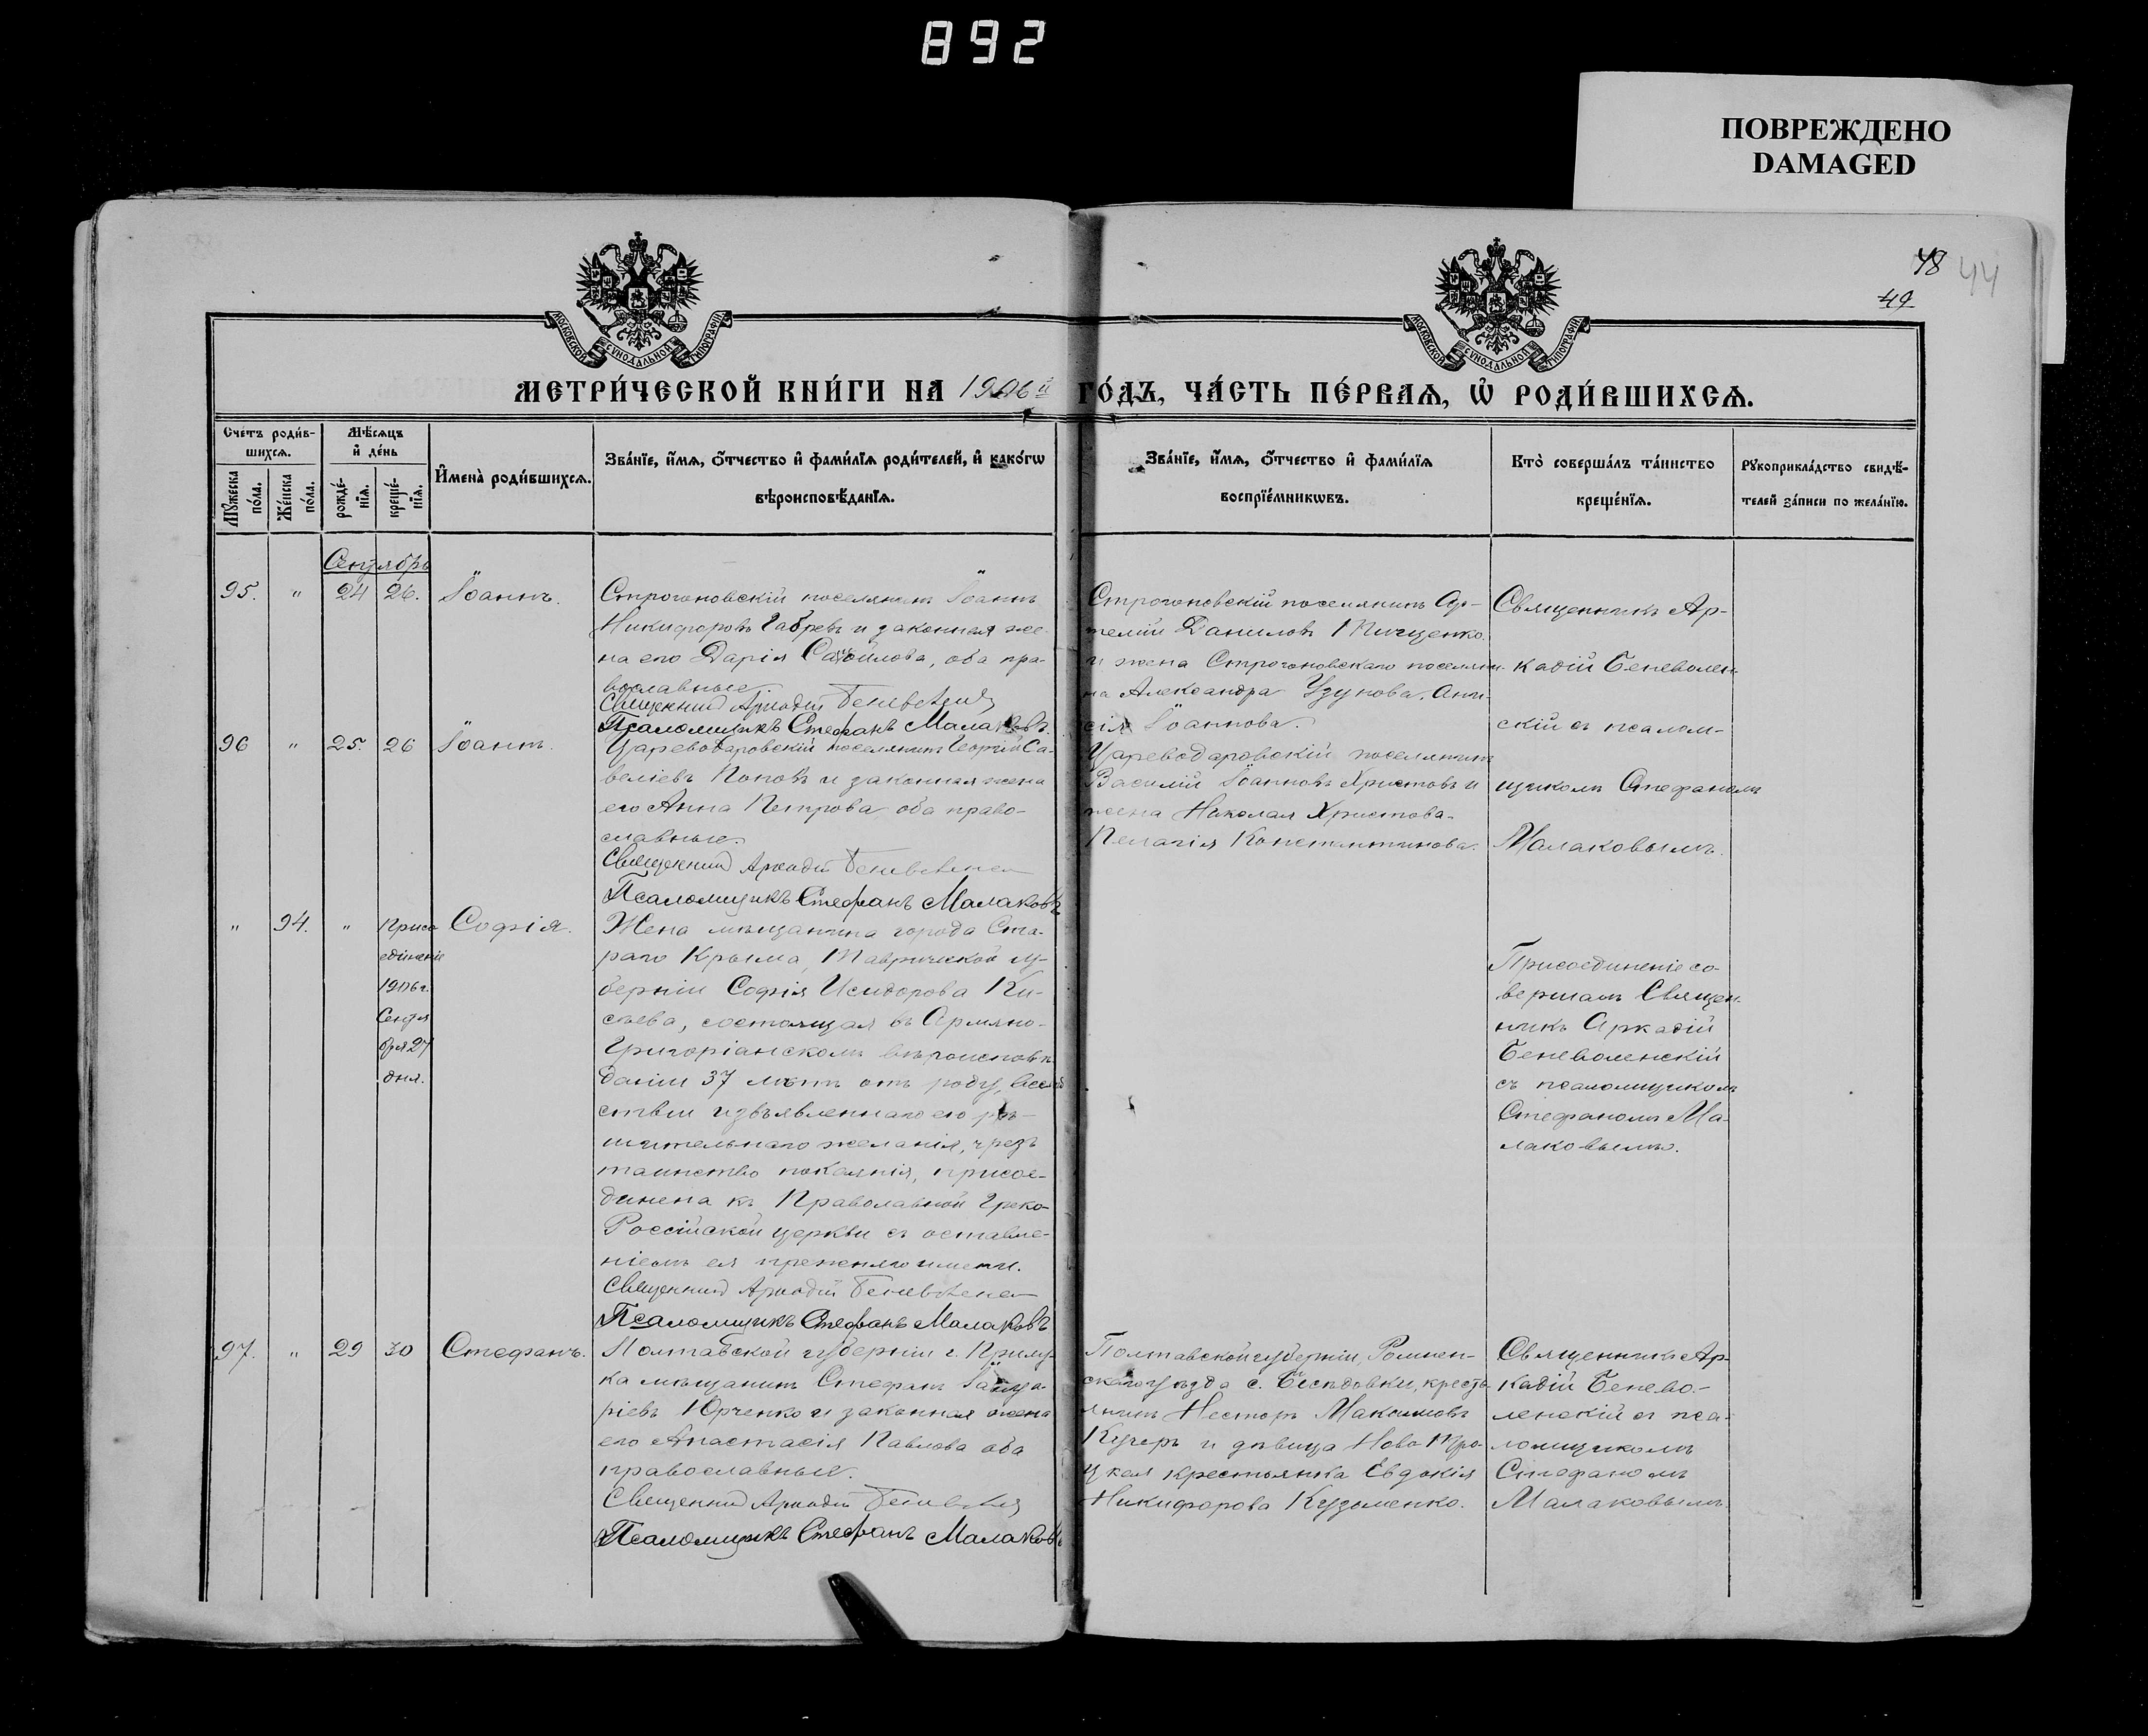 892
ПОВРЕЖДЕНО
DAMAGED
48 44
49
МОСКОВСКОЙ СУНОДАЛЬНОЙ ТИПОГРАФІИ
МОСКОВСКОЙ СУНОДАЛЬНОЙ ТИПОГРАФІИ
МЕТРИ́ЧЕСКОЙ КНИ́ГИ НА 1906 й ГО́ДЪ, ЧА́СТЬ ПЕ́РВАѦ, Ѡ҆ РОДИ́ВШИХСѦ.
Сче́тъ роди́в-
шихсѧ.
Мꙋ́жеска
по́ла.
Же́нска
по́ла.
Мѣ́сѧцъ
и҆ де́нь
рожде́-
нїѧ.
креще́-
нїѧ.
И҆мена̀ роди́вшихсѧ.
Зва́нїе, и҆́мѧ, ѻ҆́тчество и҆ фами́лїѧ роди́телей, и҆ како́гѡ
вѣроисповѣ́данїѧ.
Зва́нїе, и҆́мѧ, ѻ҆́тчество и҆ фами́лїѧ
воспрїе́мникѡвъ.
Кто̀ соверша́лъ та́инство
креще́нїѧ.
Рꙋкоприкла́дство свидѣ́-
телей за́писи по жела́нїю.
Сентябрь
95. " 24 26. Іоаннъ.
Строгоновскій поселянинъ Іоаннъ
Никифоровъ Габревъ и законная же-
на его Дарія Самойлова, оба пра-
вославные
Священникъ Аркадій Беневоленскій
Псаломщикъ Стефанъ Малаковъ.
Строгоновскій поселянинъ Ар-
темій Даниловъ Тищенко
и жена Строгоновскаго поселяни-
на Александра Узунова, Ани-
сія Іоаннова.
Священникъ Ар-
кадій Беневолен-
скій съ псалом-
щикомъ Стефаномъ
Малаковымъ.
96 " 25. 26 Іоаннъ.
Цареводаровскій поселянинъ Георгій Са-
веліевъ Поповъ и законная жена
его Анна Петрова оба право-
славные.
Священникъ Аркадій Беневоленскій
Псаломщикъ Стефанъ Малаковъ
Цареводаровскій поселянинъ
Василій Іоанновъ Христовъ и
жена Николая Христова
Пелагія Константинова.
" 94. " Присо
единеніе
1906 г.
Сентя
бря 27
дня.
Софія.
Жена мѣщанина города Ста-
раго Крыма, Таврической гу-
берніи Софія Исидорова Ки-
сьева, состоящая въ Армяно-
Григоріанскомъ вѣроисповѣ-
даніи 37 лѣтъ отъ роду, вслѣд
ствіи изъявленнаго ею рѣ-
шительнаго желанія, чрезъ
таинство покаянія, присое-
динена къ Православной Греко-
Россійской церкви съ оставле-
ніемъ ея прежняго имени.
Священникъ Аркадій Беневоленскій
Псаломщикъ Стефанъ Малаковъ
Присоединеніе со-
вершалъ Священ-
никъ Аркадій
Беневоленскій
съ псаломщикомъ
Стефаномъ Ма-
лаковымъ.
97. " 29 30 Стефанъ.
Полтавской губерніи г. Прилу-
ка мѣщанинъ Стефанъ Іануа-
ріевъ Юрченко и законная жена
его Анастасія Павлова оба
православные.
Священникъ Аркадій Беневоленскій
Псаломщикъ Стефанъ Малаковъ
Полтавской губерніи, Ромнен-
скаго уѣзда с. Бѣсѣдовки, кресть-
янинъ Несторъ Максимовъ
Кучеръ и дѣвица Ново Тро-
цкая крестьянка Евдокія
Никифорова Кузьменко.
Священникъ Ар-
кадій Бенево-
ленскій съ пса-
ломщикомъ
Стефаномъ
Малаковымъ.